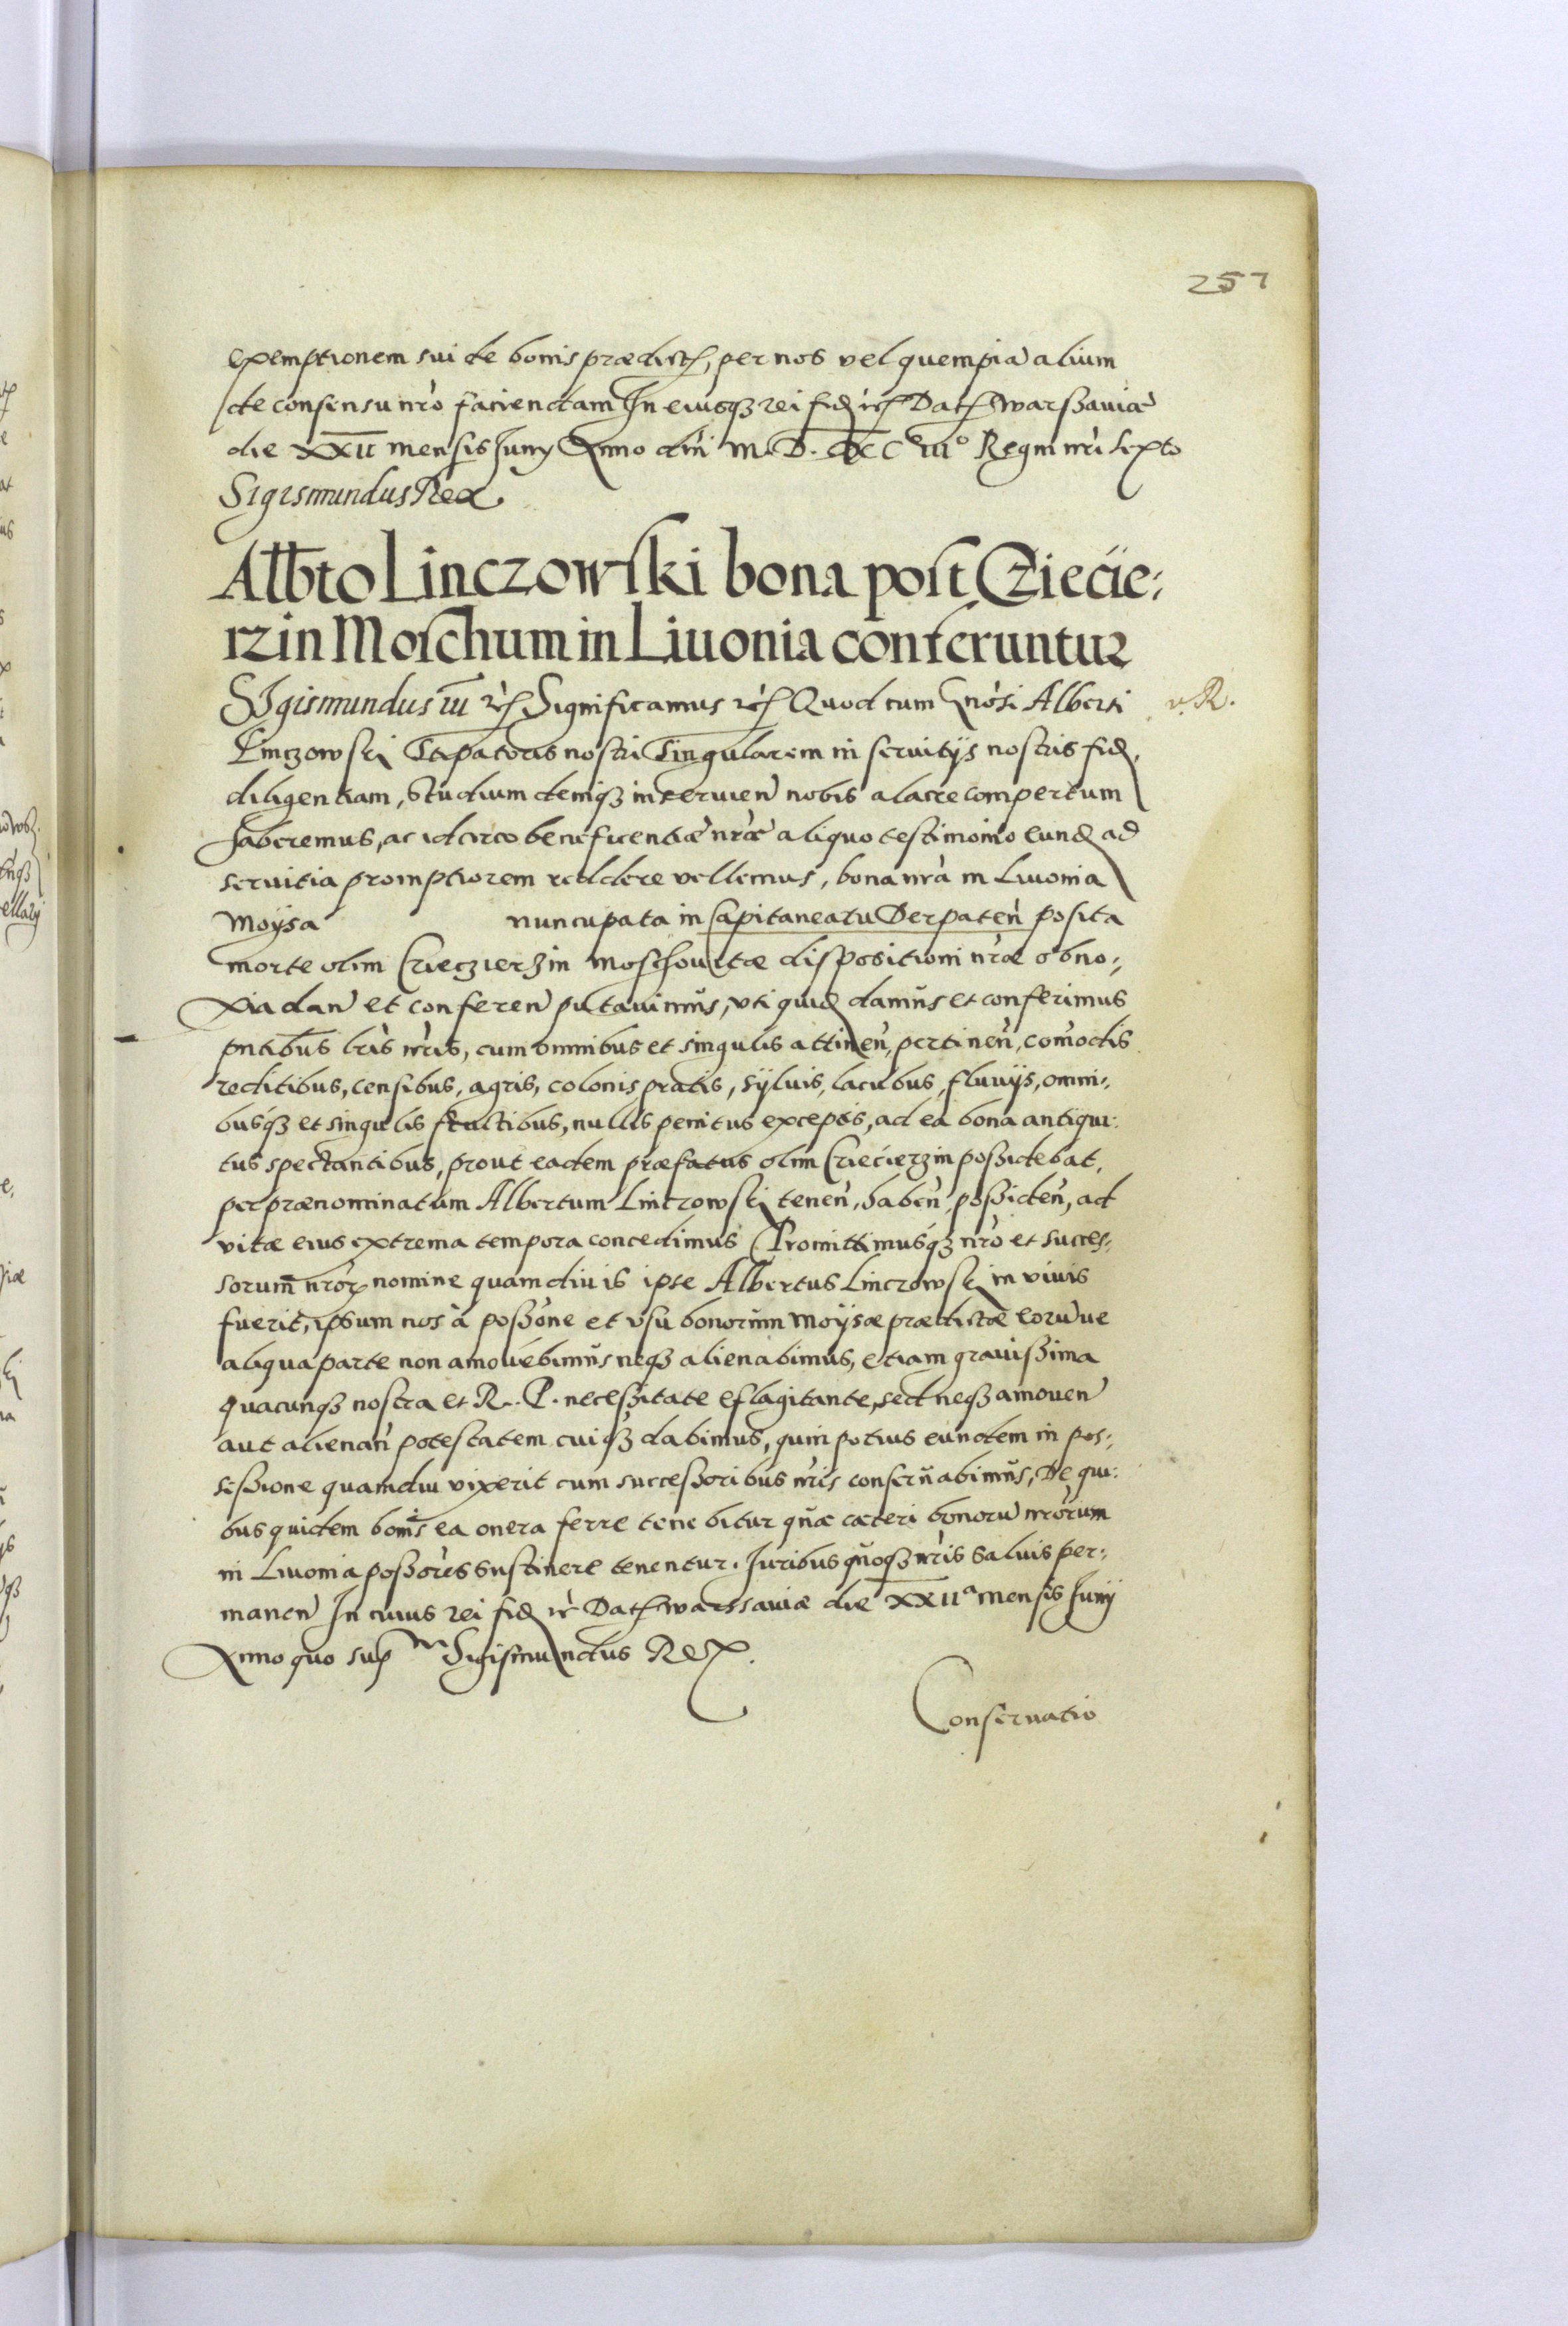 257
exemptionem sui de bonis prædict, per nos vel quempia alium
de consensu nro faciendam In eiusqз rei fid etc Dat Warssaviæ
die XXII mensis Juny Anno dni M. D. XC III° Regni nri sexto
Sigismundus Rex
Albto Linczowski bona post Cziecie:
rzin Moschum in Liuonia conferuntur
Sigismundus III etc Significamus etc Quod cum Gnosi Alberti
v. R.
Linczowski Stipatoris nostri singularem in seruitijs nostris fid,
diligentiam, studium deniqз inseruien nobis alacre compertum
haberemus, ac idcirco beneficentiæ nræ aliquo testimonio eund ad
seruitia promptiorem reddere vellemus, bona nra in Liuonia
Moysa nuncupata in Capitaneatu Derpaten posita
morte olim Crieczierzin Moschouitæ dispositioni nræ obno:
xia dan et conferen putauimus, vti quid damus et conferimus
pntibus lris nris, cum omnibus et singulis attinen, pertinen, comodis
reditibus, censibus, agris, colonis pratis, syluis, lacubus, fluuijs, omni:
busqз et singulis fructibus, nullis penitus exceptis, ad ea bona antiqui:
tus spectantibus, prout eadem præfatus olim Crieciezin possidebat,
per prænominatum Albertum Linczowski tenen, haben, possiden, ad
vitæ eius extrema tempora concedimus Promittimusqз nro et succes:
sorum nror nomine quamdiu is ipse Albertus Linczowski in viuis
fuerit, ipsum nos à possone et vsu bonorum Moysæ prædictæ eoruue
aliqua parte non amouebimus neqз alienabimus, etiam grauissima
quacunqз nostra et R. P. necessitate eflagitante, sed neqз amouen
aut alienan potestatem cuiqз dabimus, quin potius eundem in pos:
sessione quamdiu vixerit cum successoribus nris conseruabimus, De qui:
bus quidem bonis ea onera ferre tenebitur quæ cæteri bonoru nrorum
in Liuonia possores sustinere tenentur. Juribus quoqз nris saluis per:
manen In cuius rei fid etc Dat Warssauiæ die XXIIa mensis Junij
Anno quo sup Sigismundus Rex.
Conseruatio